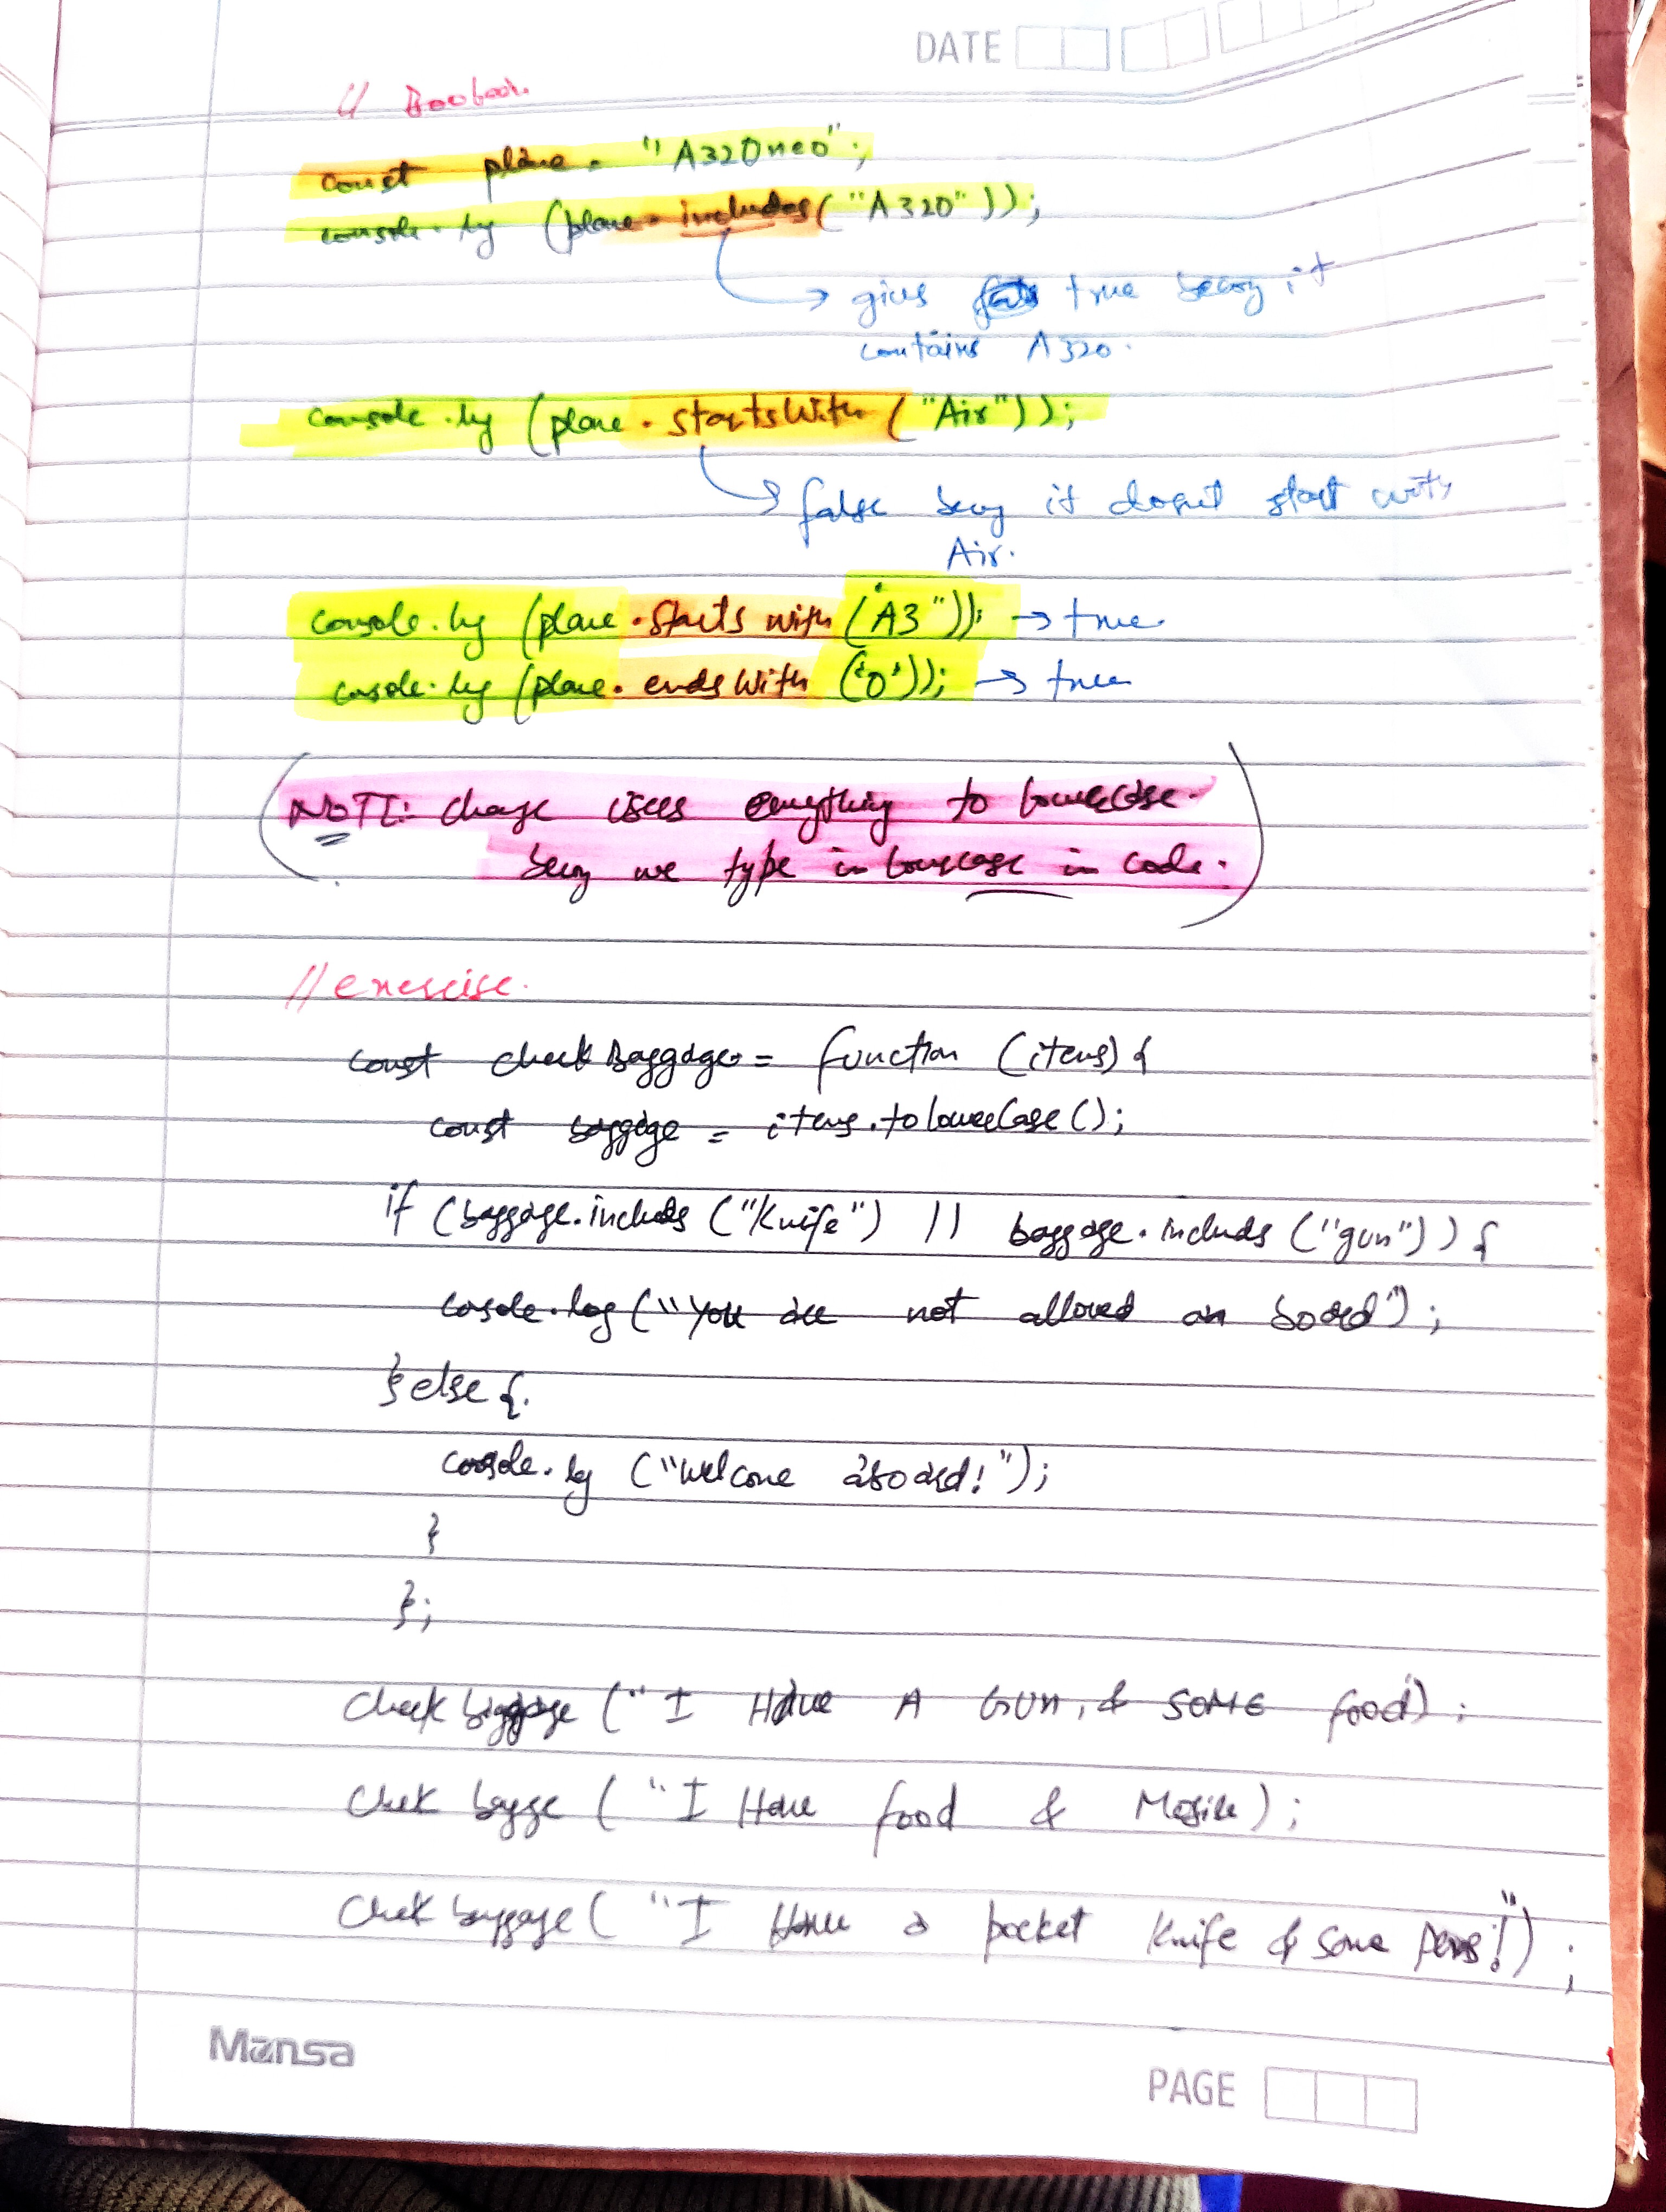 DATE
// Boolean
const plane = "A320neo";
console.log (plane.includes("A320"));
gives true becoz it
contains A320.
console.log (plane.startsWith("Air"));
false becoz it doesn't start with
Air.
console.log (plane.starts with ("A3")); → true
console.log (plane.endsWith ('0')); → true
NOTE: change users everything to lowercase.
becoz we type in lowercase in code.
// exercise.
const checkBaggage = function (items) {
const baggage = items.toLowerCase();
if (baggage.includes ("Knife") || baggage.includes ("gun")) {
console.log ("You are not allowed on board");
} else {.
console.log ("Welcome aboard!");
}
};
Check baggage (" I Have A GUN, & SOME food);
Check bagge ( "I Have food & );
Check baggage ( "I Have a pocket Knife & some pens!");
Mansa
PAGE